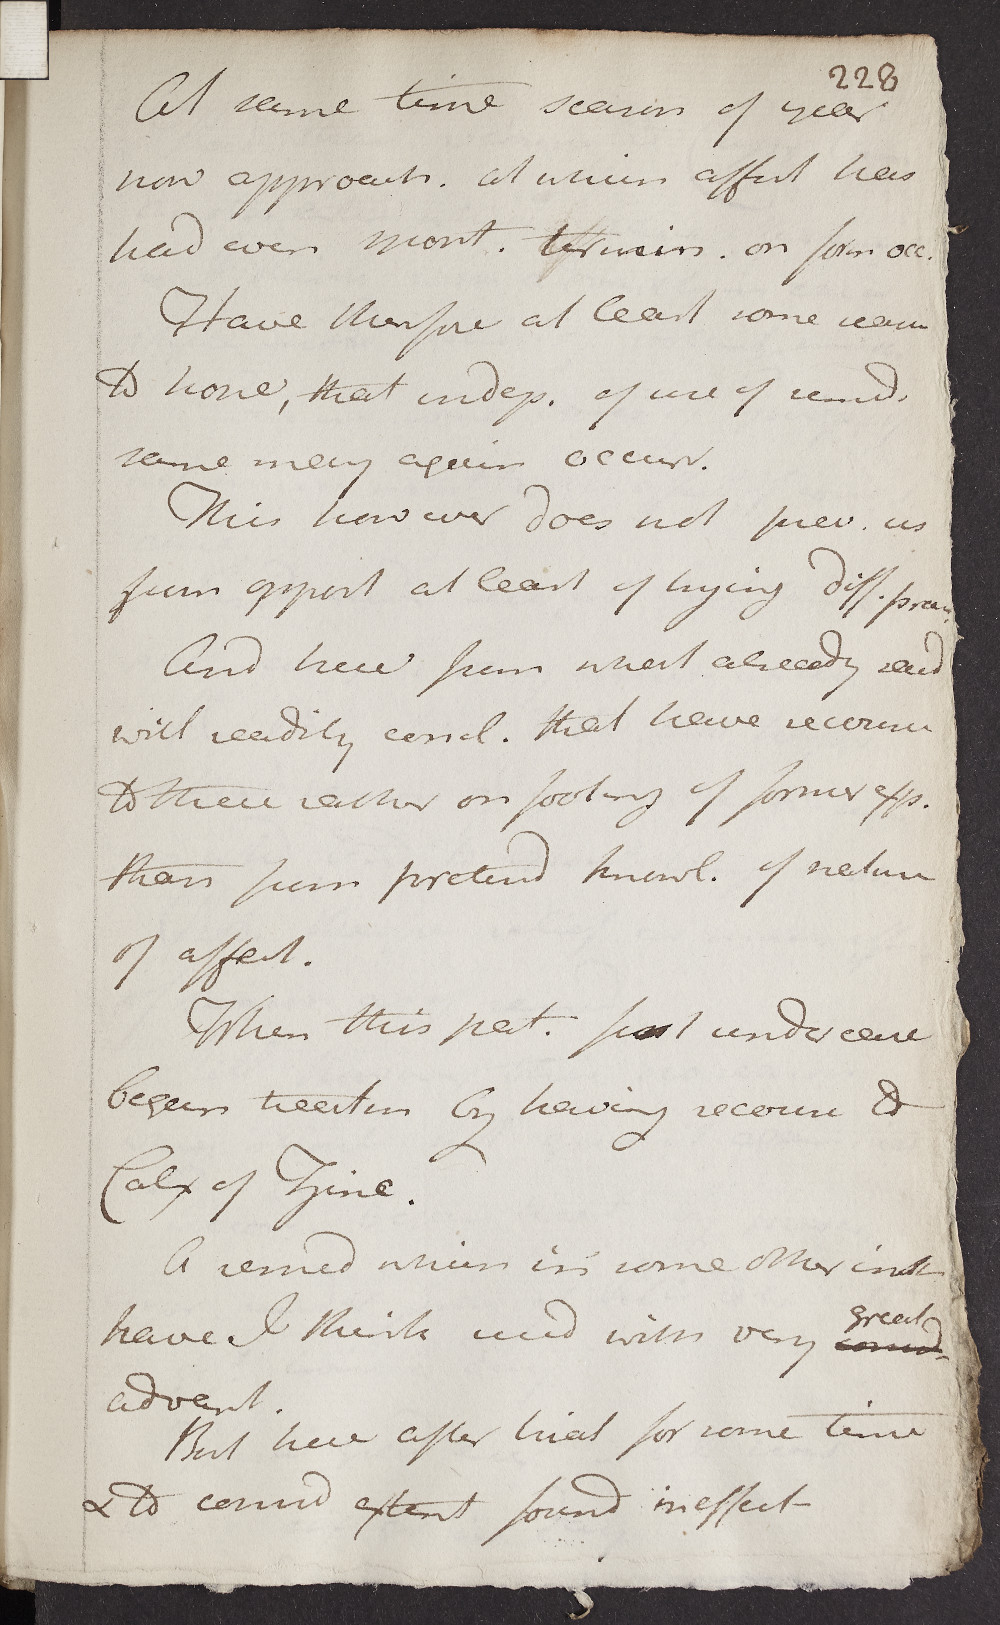 228
At same time season of year
now approach. at which affect has
had even spont. termin. on form occ.
Have therfore at least some reason
to hope, that indep. of use of remed.
same may again occurr.
This however does not prev. us
from opport at least of trying diff.
And here from what already said
will readily concl. that have recourse
to these rather on footing of former exp.
than from pretend knowl. of nature
of affect.
When this pat. first under care
began treatm by having recourse to
Calx of Zinc.
A remed which in some other inst
have I think used with very great
advant.
But here after trial for some time
& to consid extent found ineffect